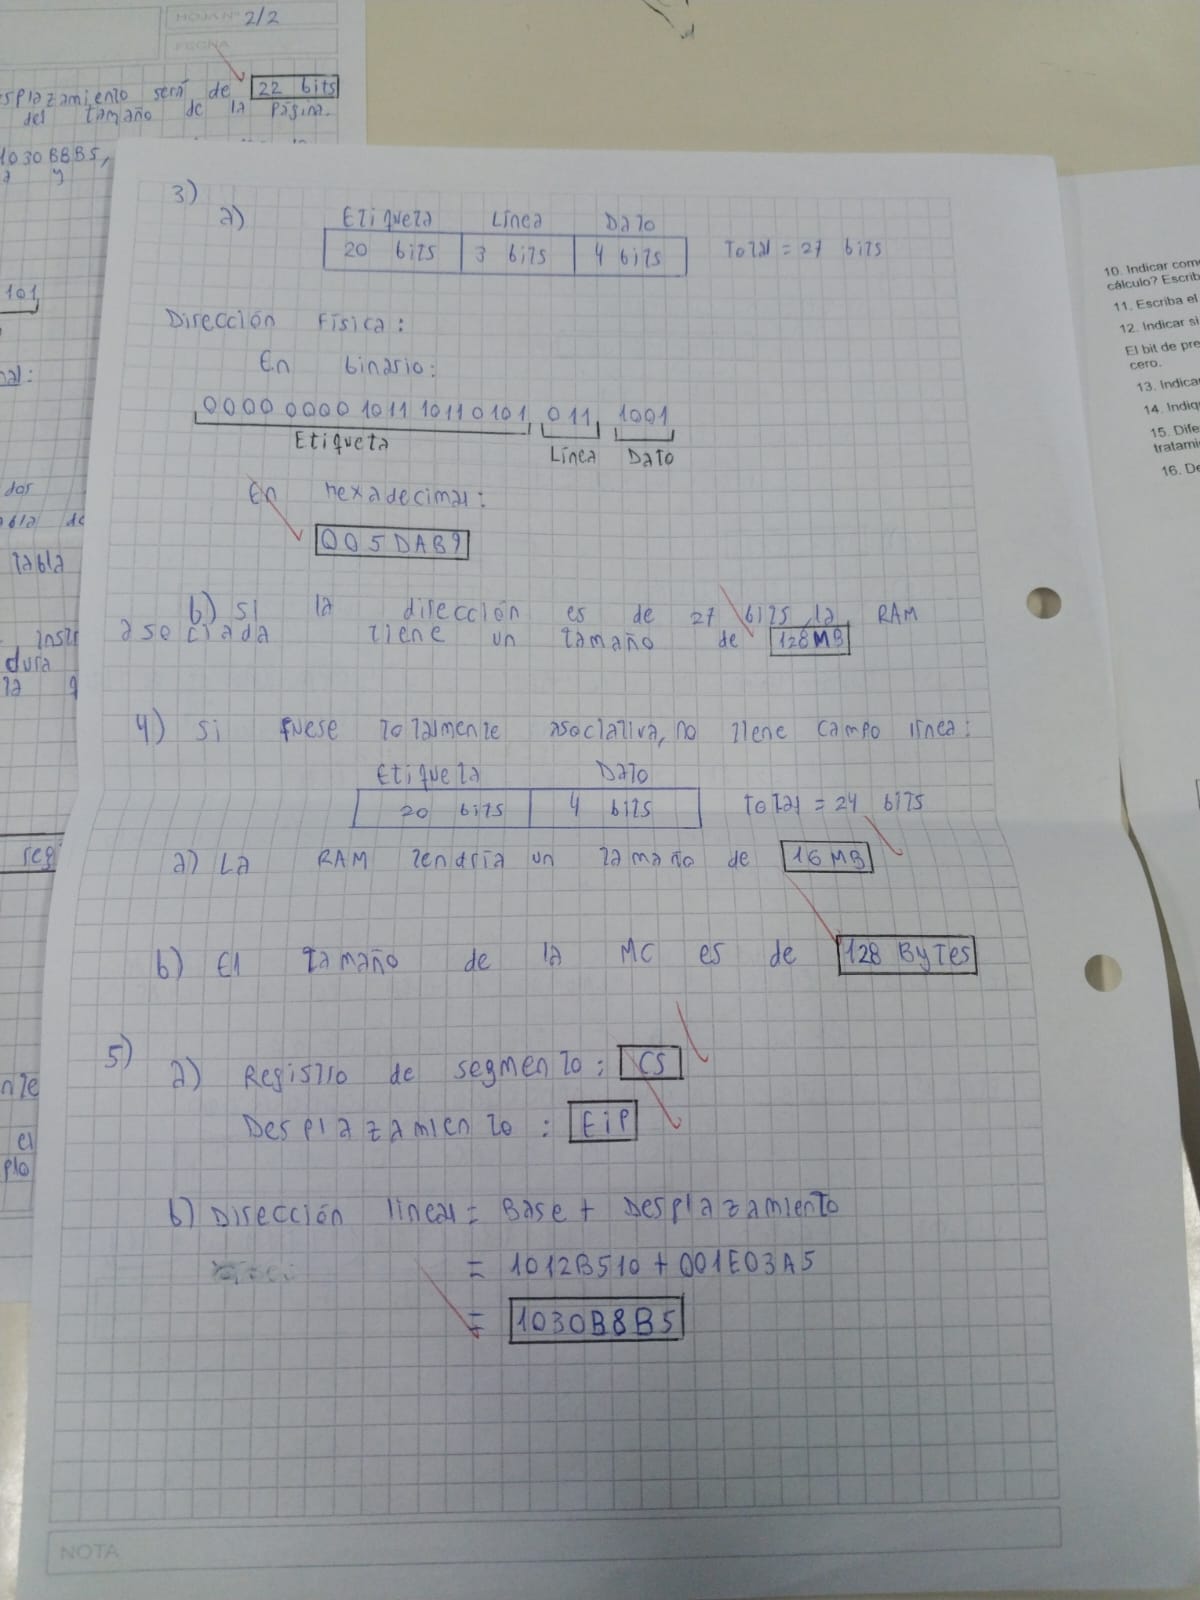 HOJA Nº 2/2
FECHA
splazamiento será de 22 bits
del tamaño de la Página.
1030B8B5,
a y
101
nal:
dos
abla de
Tabla
instr
dura
la q
reg
nte
el
plo
3)
a)
Etiqueta Línea Dato
20 bits 3 bits 4 bits Total = 27 bits
Dirección Física:
En binario:
0000 0000 1011 10110101 011 1001
Etiqueta Línea Dato
En hexadecimal:
005DAB9
b) Si la dirección es de 27 bits, la RAM
asociada tiene un tamaño de 128MB
4) Si fuese totalmente asociativa, no tiene campo línea:
Etiqueta Dato
20 bits 4 bits Total = 24 bits
a) La RAM tendría un tamaño de 16MB
b) El tamaño de la MC es de 128 Bytes
5)
a) Registro de segmento: CS
Desplazamiento: EiP
b) Dirección lineal = Base + Desplazamiento
= 1012B510 + 001E03A5
= 1030B8B5
NOTA
10. Indicar com
cálculo? Escrib
11. Escriba el
12. Indicar si
El bit de pre
cero.
13. Indica
14. Indiq
15. Dife
tratami
16. De